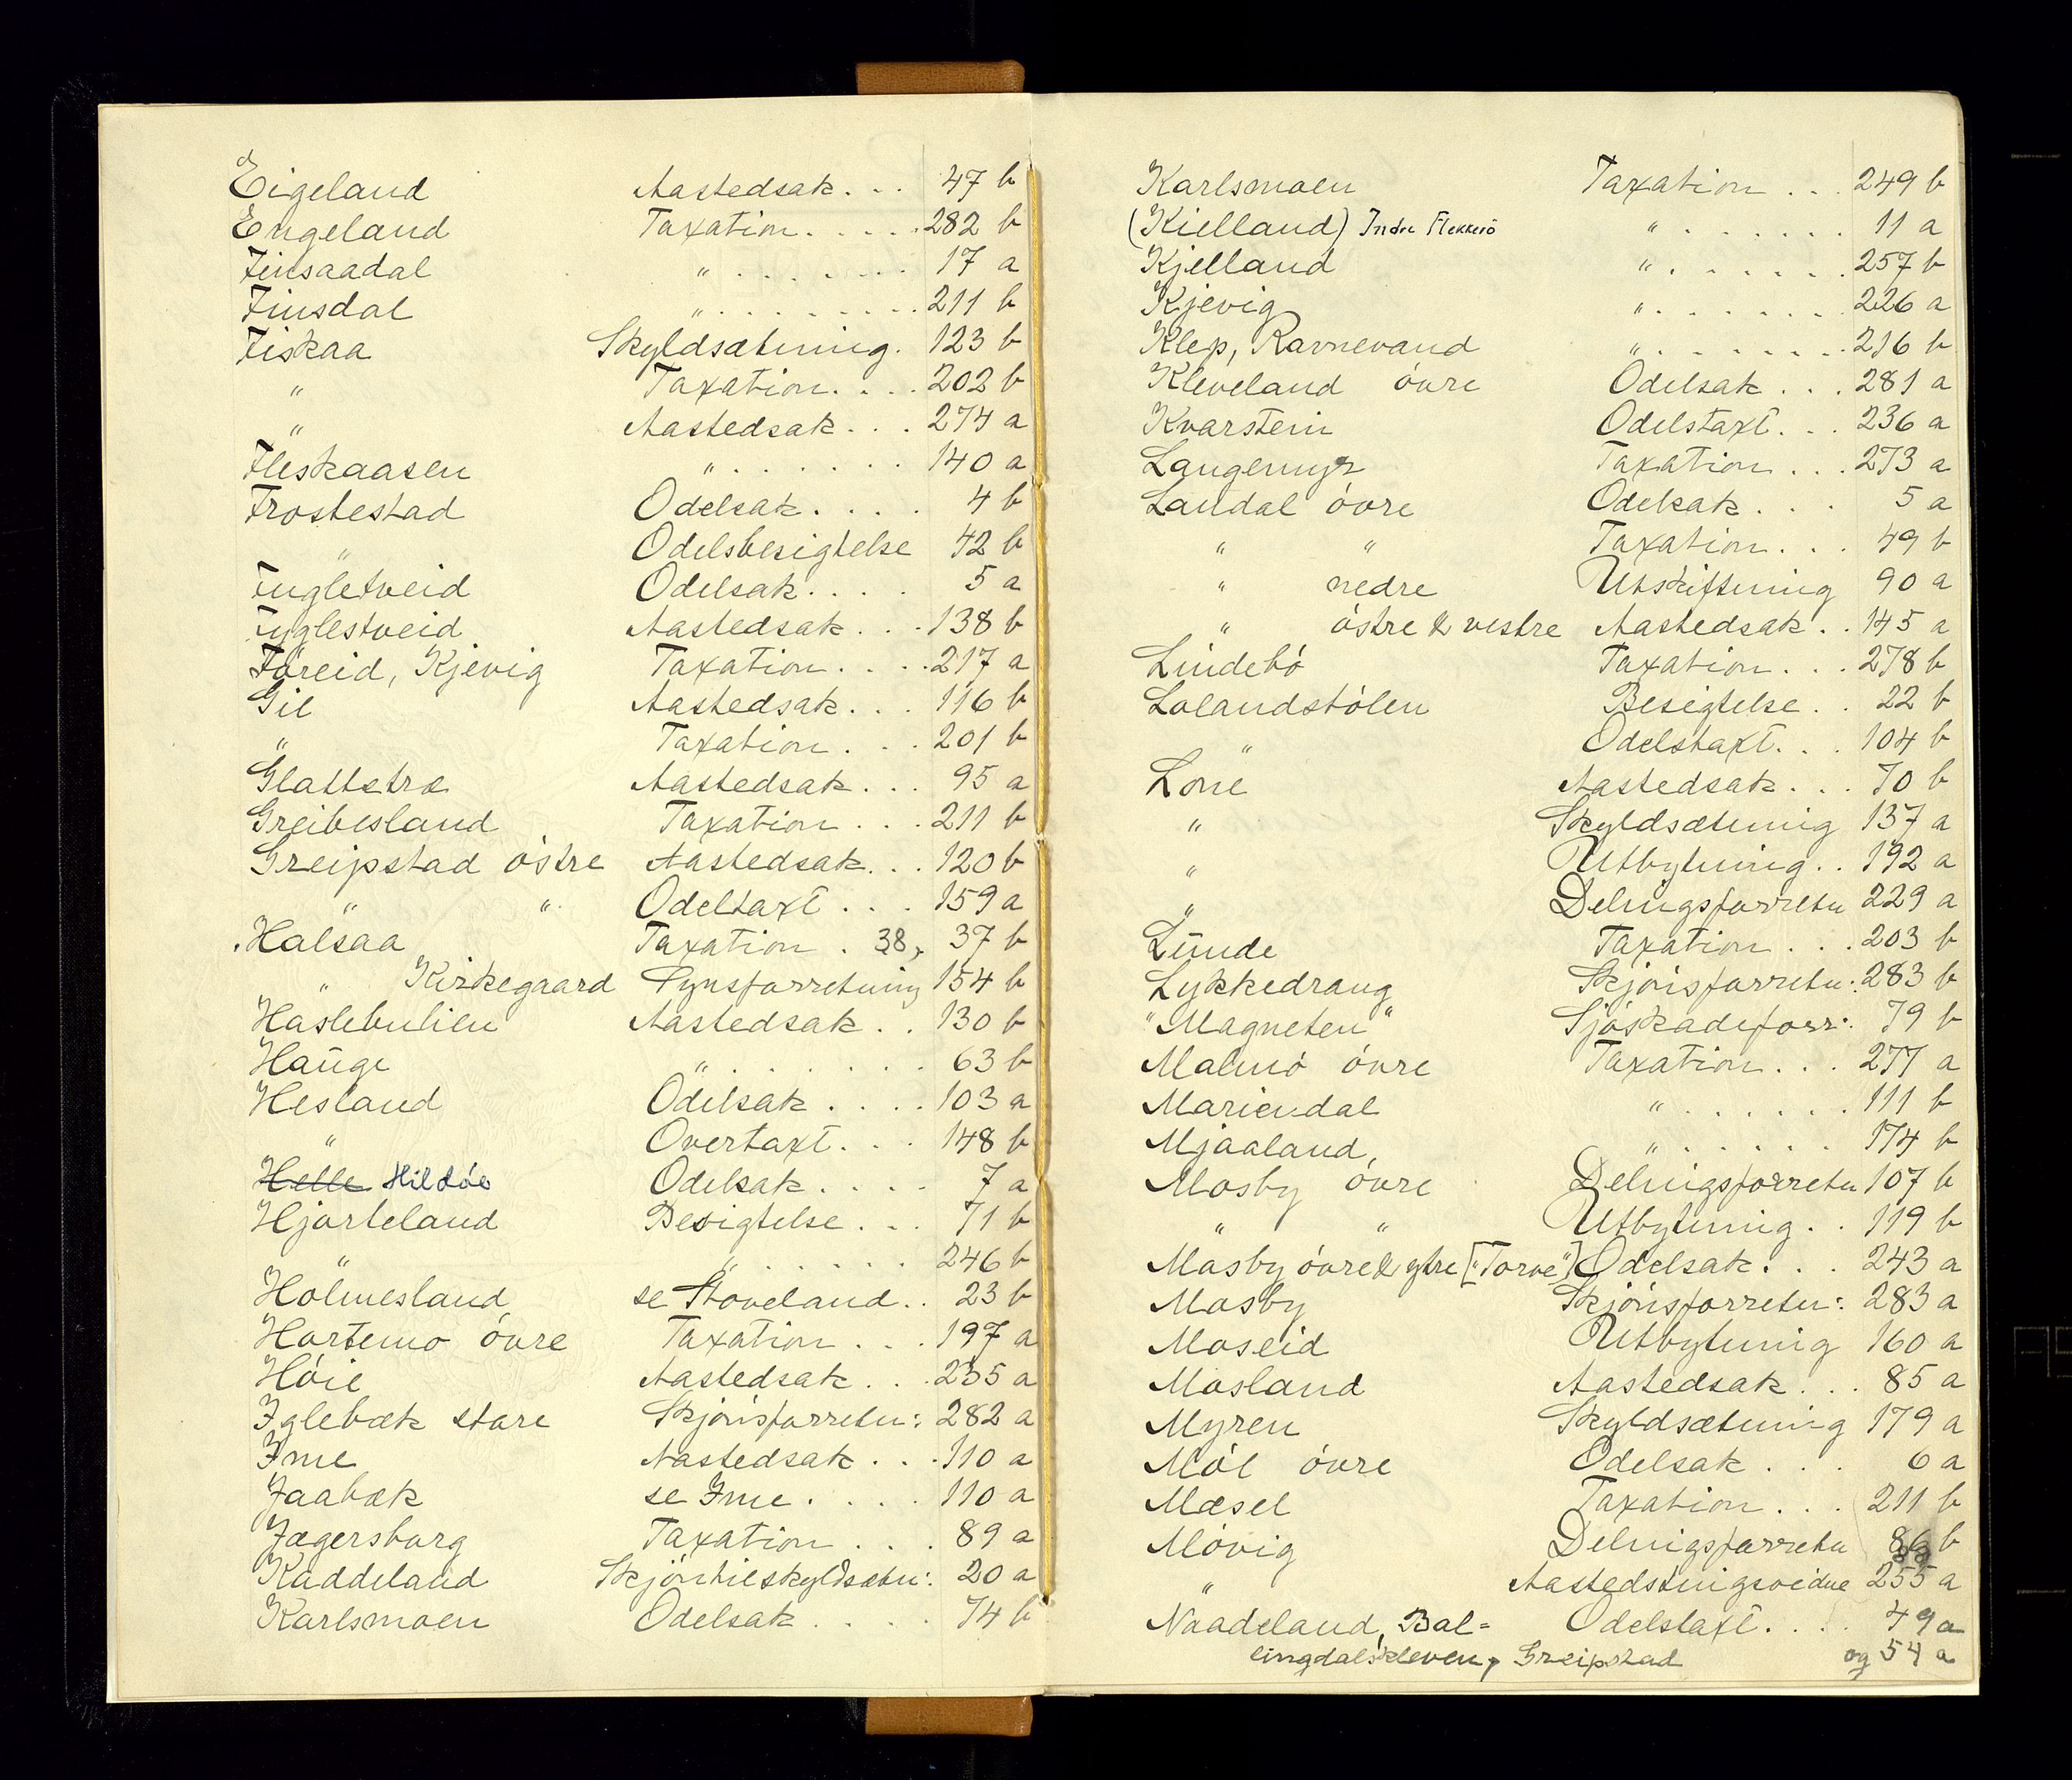 Eigeland Aastedsak. . . 47 b
Engeland Taxation. . . . . 282 b
Finsaadal " . . . . . . 17 a
Finsdal " . . . . . . . . . 211 b
Fiskaa Skyldsætning. 123 b
" Taxation. . . . 202 b
" Aastedsak. . . 274 a
Fleskaasen " . . . . . . . 140 a
Frostestad Odelsak. . . . 4 b
" Odelsbesigtelse 42 b
Fugletveid Odelsak. . . . 5 a
Fuglestveid Aastedsak. . . 138 b
Føreid, Kjevig Taxation. . . . 217 a
Gil Aastedsak. . . 116 b
" Taxation. . . . 201 b
Glattetræ Aastedsak. . . 95 a
Greibesland Taxation. . . . 211 b
Greipstad óstre Aastedsak. . . 120 b
" " Odeltaxt. . . . 159 a
Halsaa Taxation . 38, 37 b
" Kirkegaard Synsforretning 154 b
Haslebulien Aastedsak. . . 130 b
Hauge " . . . . . . . 63 b
Hesland Odelsak. . . . 103 a
" Overtaxt. . . 148 b
Helle Hildóe Odelsak. . . . 7 a
Hjorteland Besigtelse. . . 71 b
" " . . . . . . 246 b
Holmesland se Stoveland. . 23 b
Hortemo óvre Taxation. . . . 197 a
Hóie Aastedsak. . . 235 a
Iglebæk store Skjónsforretn: 282 a
Ime Aastedsak. . . . 110 a
Jaabæk se Ime. . . . . 110 a
Jægersborg Taxation. . . . 89 a
Kaddeland Skjóntilskyldsætn: 20 a
Karlsmoen Odelsak. . . . 74 b
Karlsmoen Taxation. . . 249 b
(Kielland) Indre Flekkerö " . . . . . . . 11 a
Kjelland " . . . . . . . 257 b
Kjevig " . . . . . . . 226 a
Klep, Ravnevand " . . . . . . . 216 b
Kleveland óvre Odelsak. . . . 281 a
Kvarstein Odelstaxt. . . 236 a
Langemyr Taxation. . . . 273 a
Laudal óvre Odelsak. . . . 5 a
" " Taxation. . . . 49 b
" nedre Utskiftning 90 a
" óstre & vestre Aastedsak. . . 145 a
Lindebó Taxation. . . . 278 b
Lolandstólen Besigtelse. . 22 b
" Odelstaxt. . . 104 b
Lone Aastedsak. . . . 70 b
" Skyldsætning 137 a
" Utbytning. . 192 a
" Delingsforretn 229 a
Lunde Taxation. . . . 203 b
Lykkedrang Skjónsforretn: 283 b
"Magneten" Sjóskadeforr: 79 b
Malmó óvre Taxation. . . . 277 a
Mariendal " . . . . . . . 111 b
Mjaaland, " . . . . . . 174 b
Mosby óvre Delingsforretn 107 b
" " Utbytning. . . 119 b
Mosby óvre & ytre ["Torve"] Odelsak. . . 243 a
Mosby Skjónsforretn: 283 a
Moseid Utbytning 160 a
Mosland Aastedsak. . . 85 a
Myren Skyldsætning 179 a
Mól óvre Odelsak. . . . 6 a
Mæsel Taxation. . . . 211 b
Móvig Delingsforretn 86 b
88
" Aastedstingsvidne 255 a
Naadeland, Bal= Odelstaxt. . . . 49 a
lingdalskleven, Greipstad og 54 a